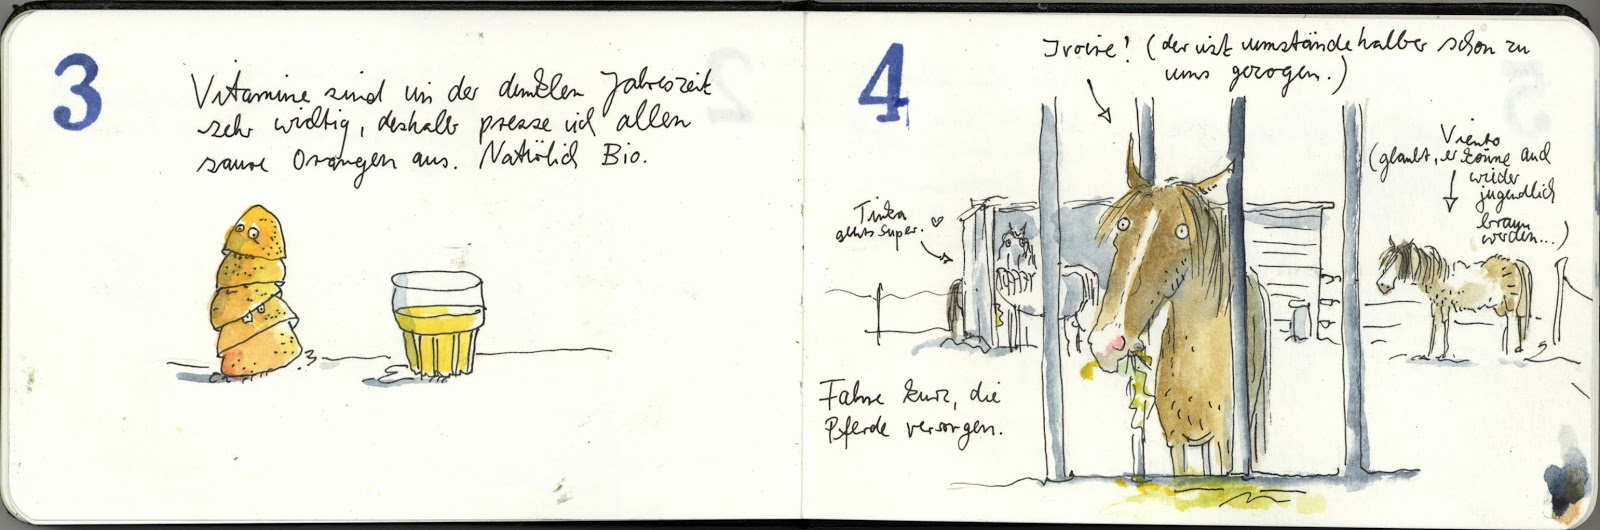 3
Vitamine sind in der dunklen Jahreszeit
sehr wichtig, deshalb presse ich allen
saure Orangen aus. Natürlich Bio.
4
Ivoire! (der ist umständehalber schon zu
uns gezogen.)
Tinka
gehts super. ♡
Viento
(glaubt, er könne auch
wieder
jugendlich
braun
werden...)
Fahre kurz, die
Pferde versorgen.